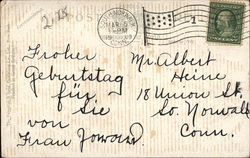 2-15
POST
Froher
Geburtstag
für
Sie
von
Frau
Mr Albert
Heine
18 Union St.
So. Norwalk
Conn.
1